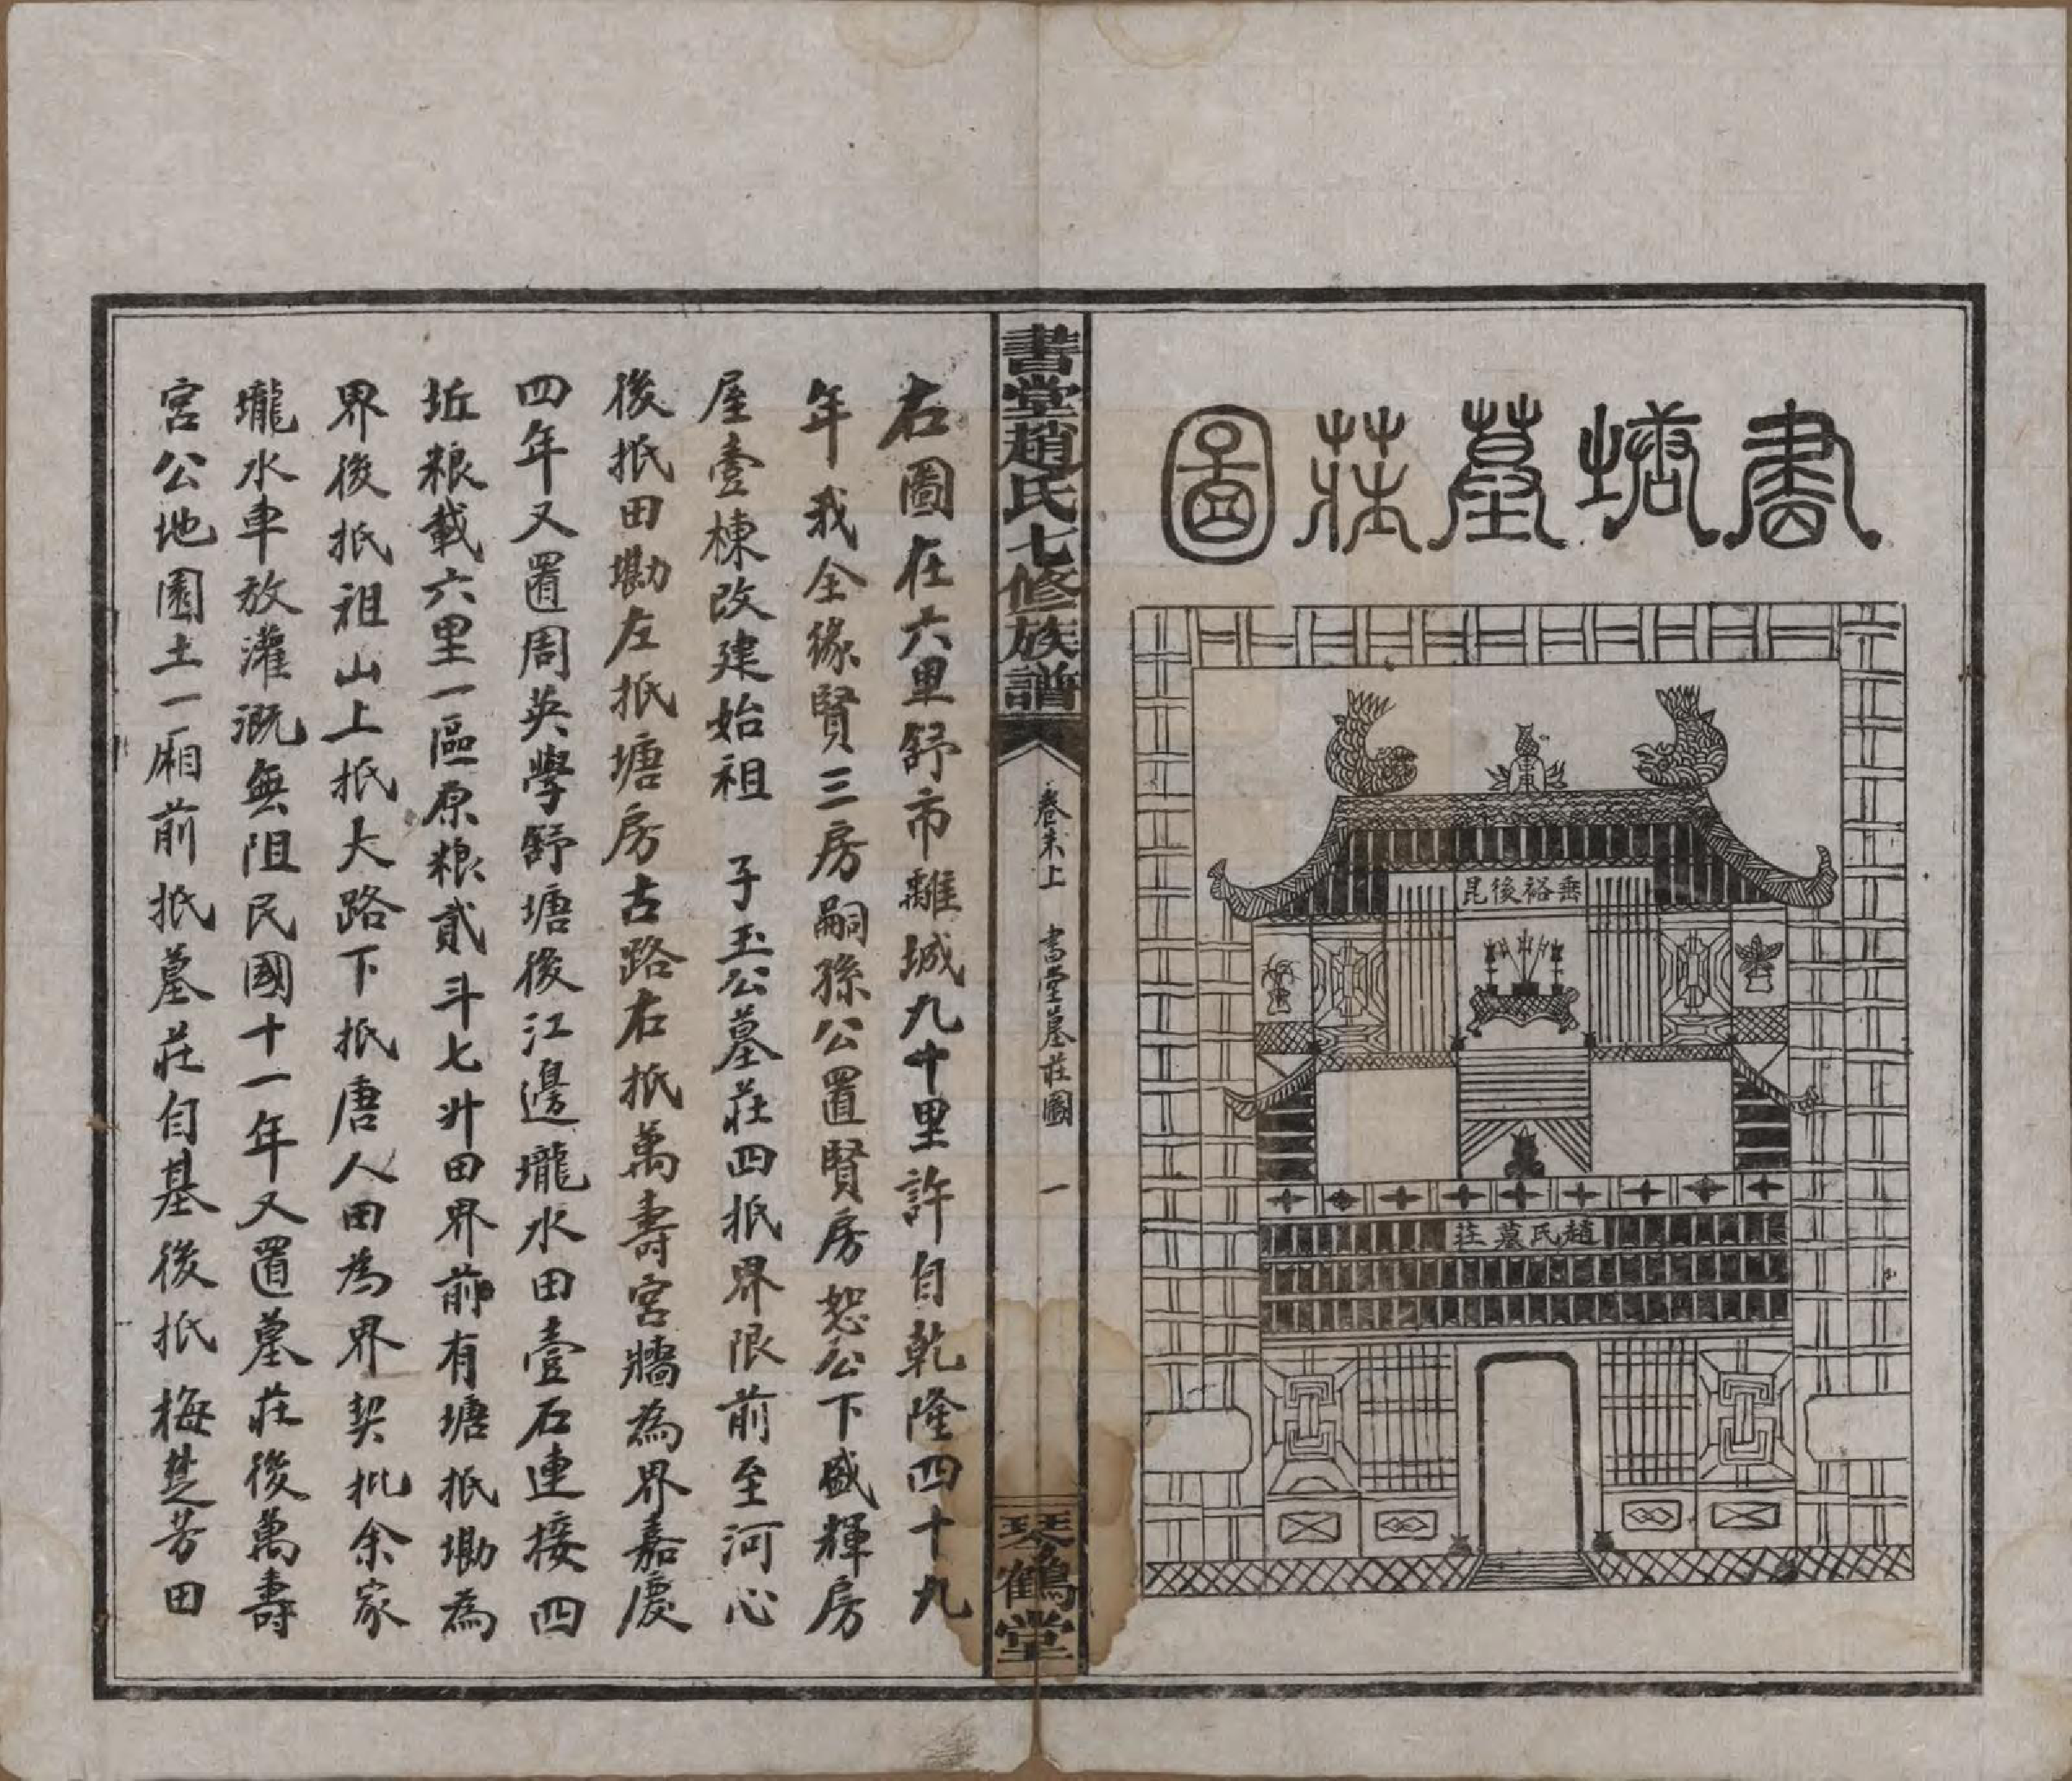 書塘墓莊圖
垂裕後昆
趙氏墓莊
書堂趙氏七修族譜
卷末上 書堂墓莊圖 一
琴鶴堂
右圖在六里舒市離城九十里許自乾隆四十九
年我全緣賢三房嗣孫公置賢房恕公下盛輝房
屋壹棟改建始祖 子玉公墓莊四抵界限前至河心
後抵田墈左抵塘房古路右抵萬壽宮牆為界嘉慶
四年又置周英學舒塘後江邊壠水田壹石連接四
坵粮載六里一區原粮貳斗七升田界前有塘抵墈為
界後抵祖山上抵大路下抵唐人田為界契批余家
壠水車放灌溉無阻民國十一年又置墓莊後萬壽
宮公地園土一廂前抵墓莊自基後抵梅楚芳田